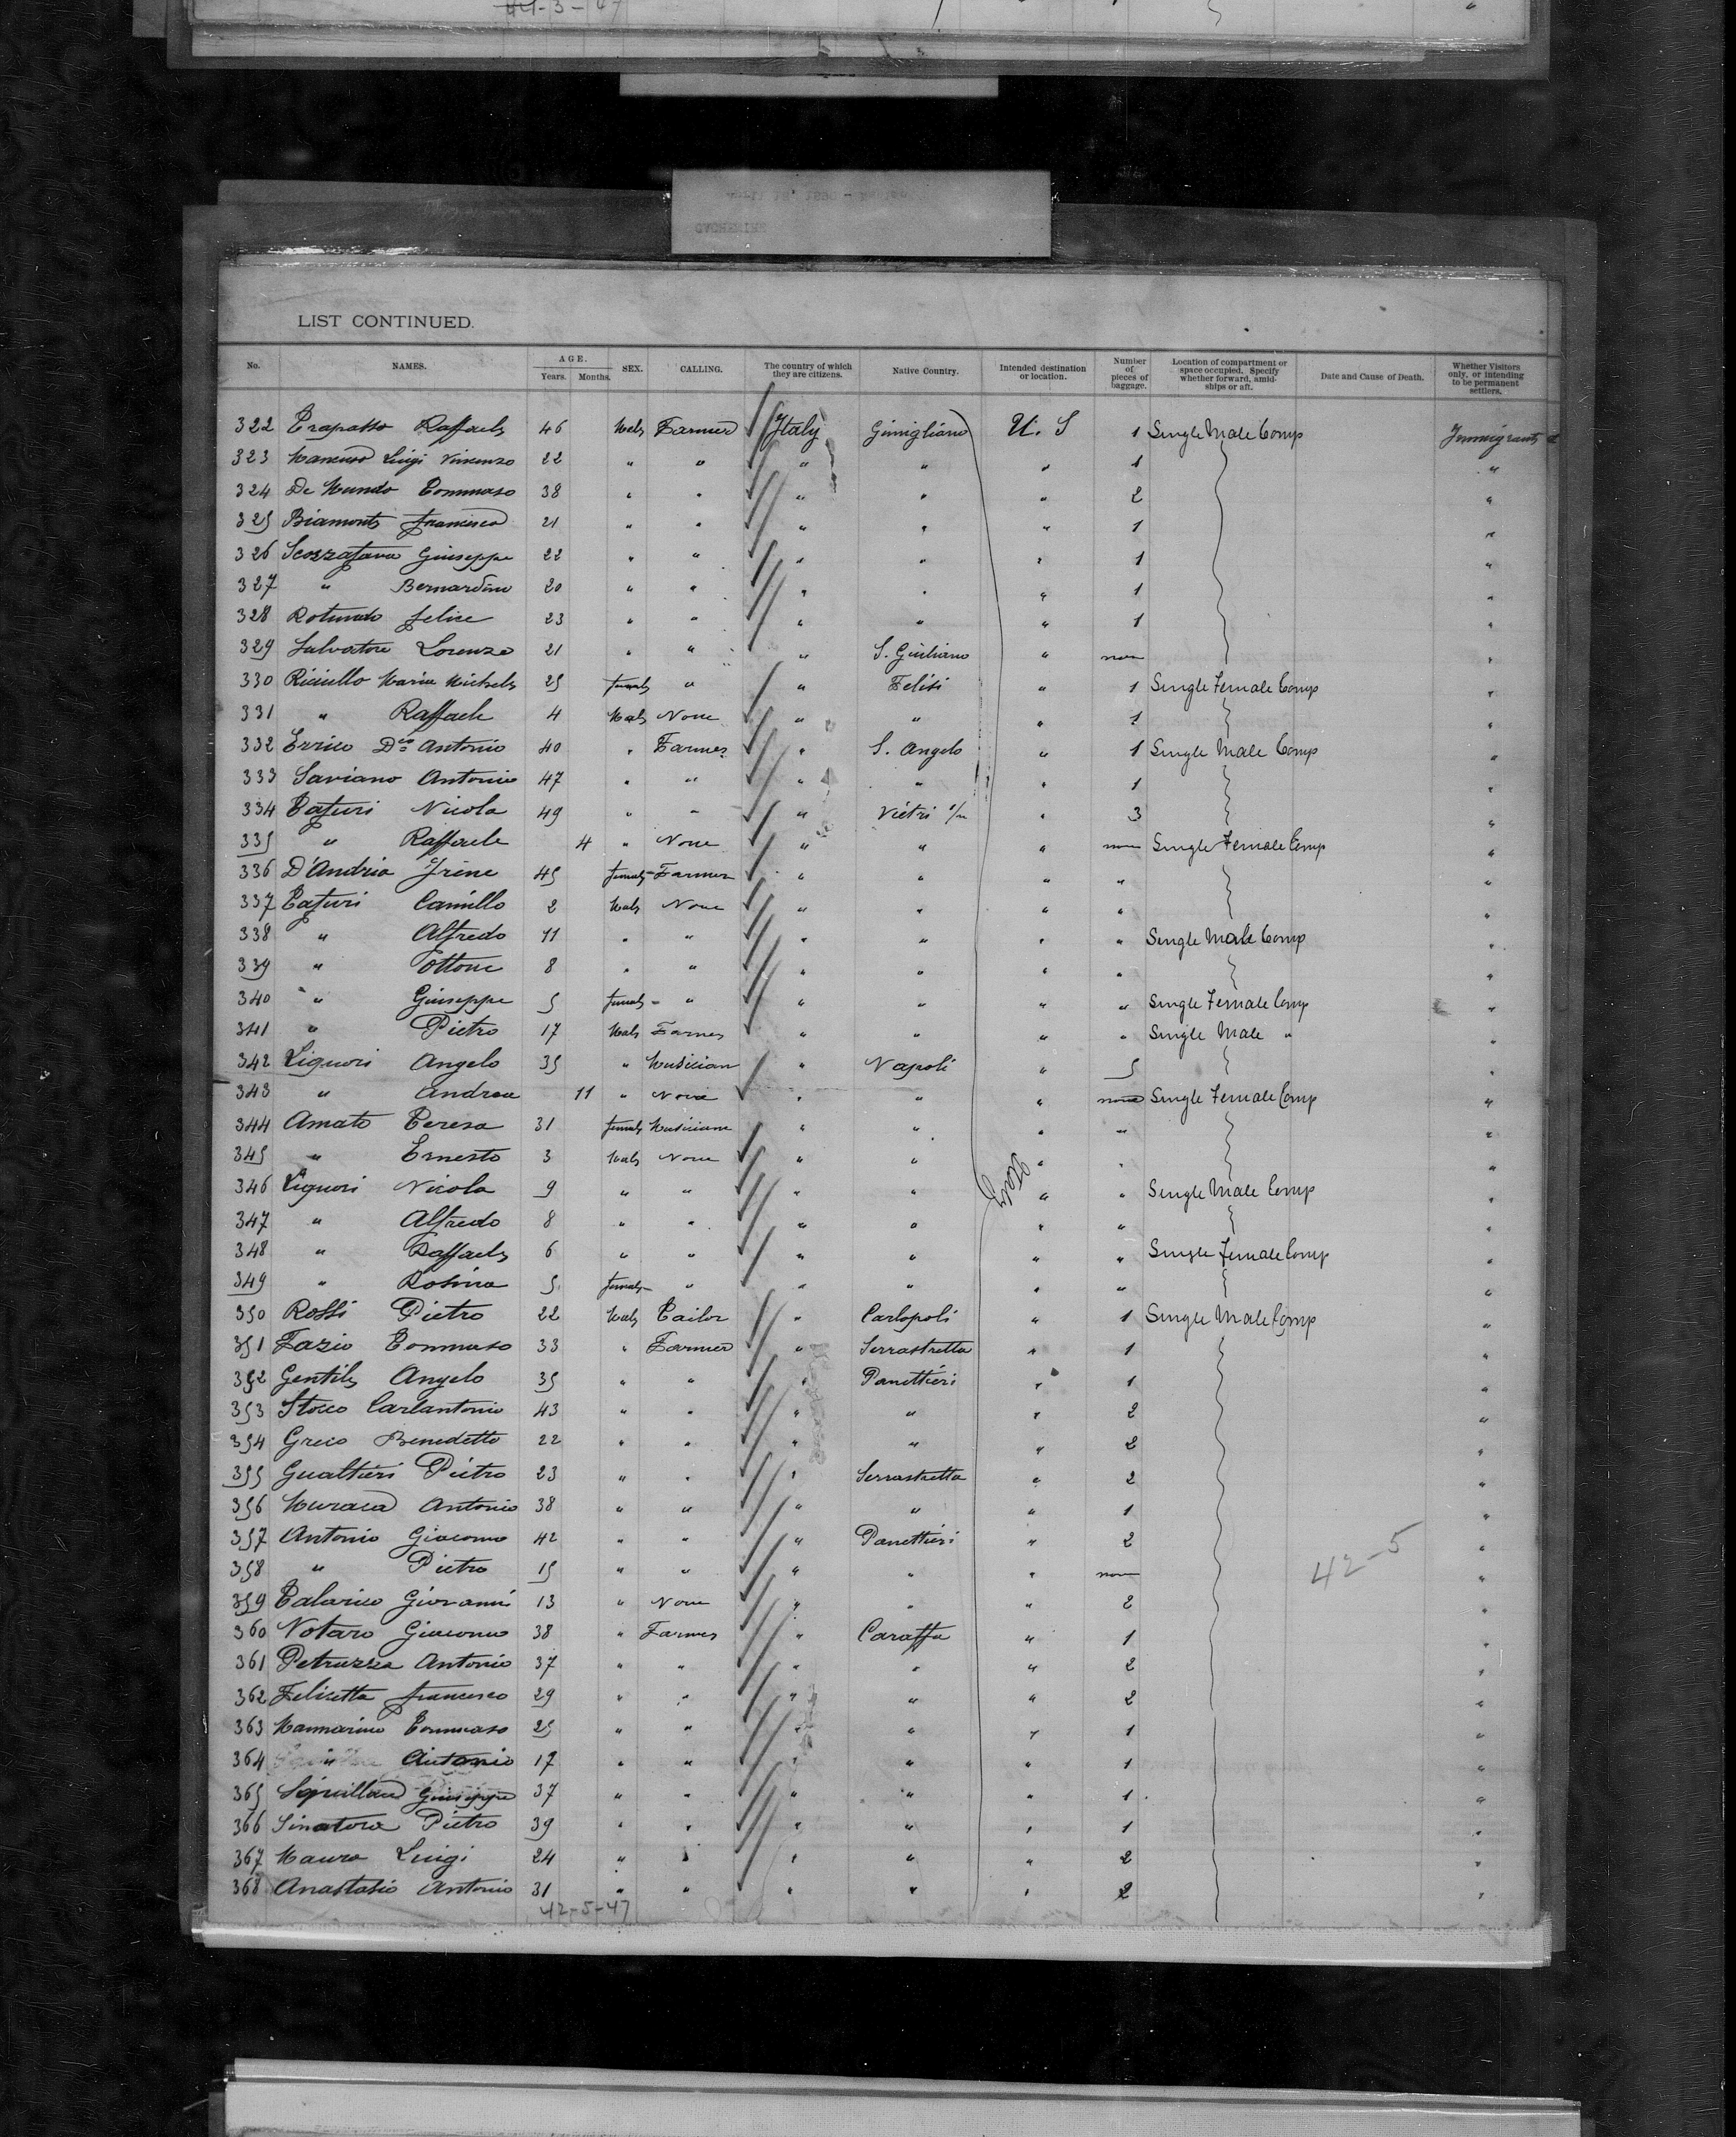 44-3-47
LIST CONTINUED.
No. NAMES. AGE. Years. Months. SEX. CALLING. The country of which they are citizens. Native Country. Intended destination or location. Number of pieces of baggage. Location of compartment or space occupied. Specify whether forward, amidships or aft. Date and Cause of Death. Whether Visitors only, or intending to be permanent settlers.
322 Trapasso Raffaele 46 Male Farmer Italy Gimigliano U. S 1 Single Male Comp Immigrants
323 Mancuso Luigi Vincenzo 22 " " " " " 1 "
324 De Mundo Tommaso 38 " " " " " 2 "
325 Biamonte Francesco 21 " " " " " 1 "
326 Scozzafava Giuseppe 22 " " " " " 1 "
327 " Bernardino 20 " " " " " 1 "
328 Rotundo Felice 23 " " " " " 1 "
329 Salvatore Lorenzo 21 " " " S. Giuliano " none "
330 Maria Michele 25 female " " Felisi " 1 Single Female Comp "
331 " Raffaele 4 Male None " " " 1 "
332 Errico Dco Antonio 40 " Farmer " S. Angelo " 1 Single Male Comp "
333 Saviano Antonio 47 " " " " " 1 "
334 Tafuri Nicola 49 " " " Vietri s/m " 3 "
335 " Raffaele 4 " None " " " none Single Female Comp "
336 D'Andria Irene 45 female Farmer " " " " "
337 Tafuri Camillo 2 Male None " " " " "
338 " Alfredo 11 " " " " " " Single Male Comp "
339 " Ottone 8 " " " " " " "
340 " Giuseppe 5 female " " " " " Single Female Comp "
341 " Pietro 17 Male Farmer " " " " Single Male " "
342 Liguori Angelo 35 " Musician " Napoli " 5 "
343 " Andrea 11 " None " " " none Single Female Comp "
344 Amato Teresa 31 female Musician " " " " "
345 " Ernesto 3 Male None " " " " "
346 Liguori Nicola 9 " " " " " " Single Male Comp "
347 " Alfredo 8 " " " " " " "
348 " Raffaele 6 " " " " " " Single Female Comp "
349 " Rosina 5 female " " " " " "
350 Rossi Pietro 22 Male Tailor " Carlopoli " 1 Single Male Comp "
351 Fazio Tommaso 33 " Farmer " Serrastretta " 1 "
352 Gentile Angelo 35 " " " Panettieri " 1 "
353 Stocco Carlantonio 43 " " " " " 2 "
354 Greco Benedetto 22 " " " " " 2 "
355 Gualtieri Pietro 23 " " " Serrastretta " 2 "
356 Muraca Antonio 38 " " " " " 1 "
357 Antonio Giacomo 42 " " " Panettieri " 2 "
358 " Pietro 15 " " " " " none 42-5 "
359 Talarico Giovanni 13 " None " " " 2 "
360 Notaro Giacomo 38 " Farmer " Caraffa " 1 "
361 Petruzza Antonio 37 " " " " " 2 "
362 Felicetta Francesco 29 " " " " " 2 "
363 Mannarino Tommaso 25 " " " " " 1 "
364 " Antonio 17 " " " " " 1 "
365 Giuseppe 37 " " " " " 1 "
366 Sinatora Pietro 39 " " " " " 1 "
367 Mauro Luigi 24 " " " " " 2 "
368 Anastasio Antonio 31 " " " " " 2 "
42-5-47